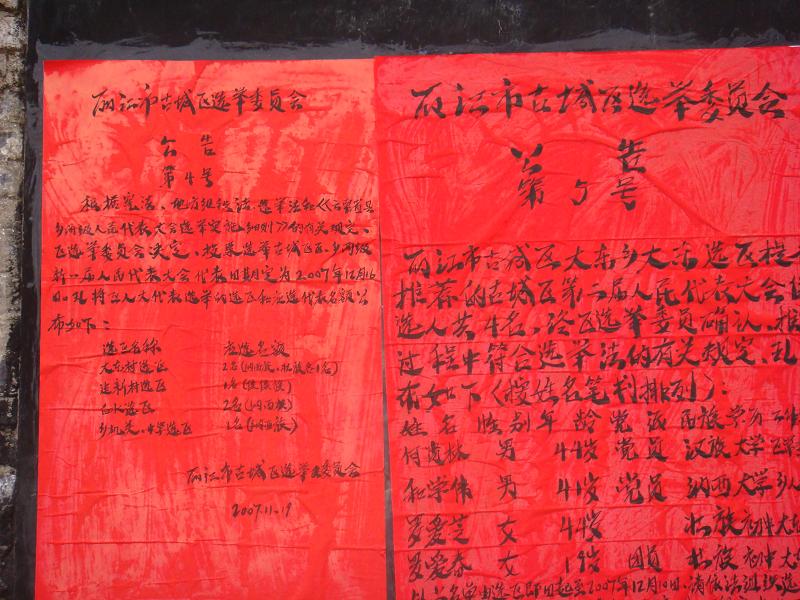 丽江市古城区选举委员会
公告
第4号
根据宪法、地方组织法、选举法和《云南省县
乡两级人民代表大会选举实施细则》的有关规定,
区选举委员会决定,投票选举古城区区、乡两级
新一届人民代表大会代表日期定为2007年12月16
日。现将区人大代表选举的选区和应选代表名额公
布如下:
选区名称 应选名额
大东村选区 2名
建新村选区 1名
白水选区 2名(纳西族)
乡机关、中学选区 1名(纳西族)
丽江市古城区选举委员会
2007.11.19
丽江市古城区选举委员会
公告
第5号
丽江市古城区大东乡大东选区提名
推荐的古城区第二届人民代表大会
选人共4名,经区选举委员确认,推
过程中符合选举法的有关规定,现
布如下(按姓名笔划排列):
姓名 性别 年龄 党派 民族 学历
何贵林 男 44岁 党员 汉族 大学
和学伟 男 41岁 党员 纳西 大学
罗爱芝 女 44岁 壮族 初中
罗爱春 女 19岁 团员 壮族 初中
以上名单由选区即日起至2007年12月10日,请依法组织选